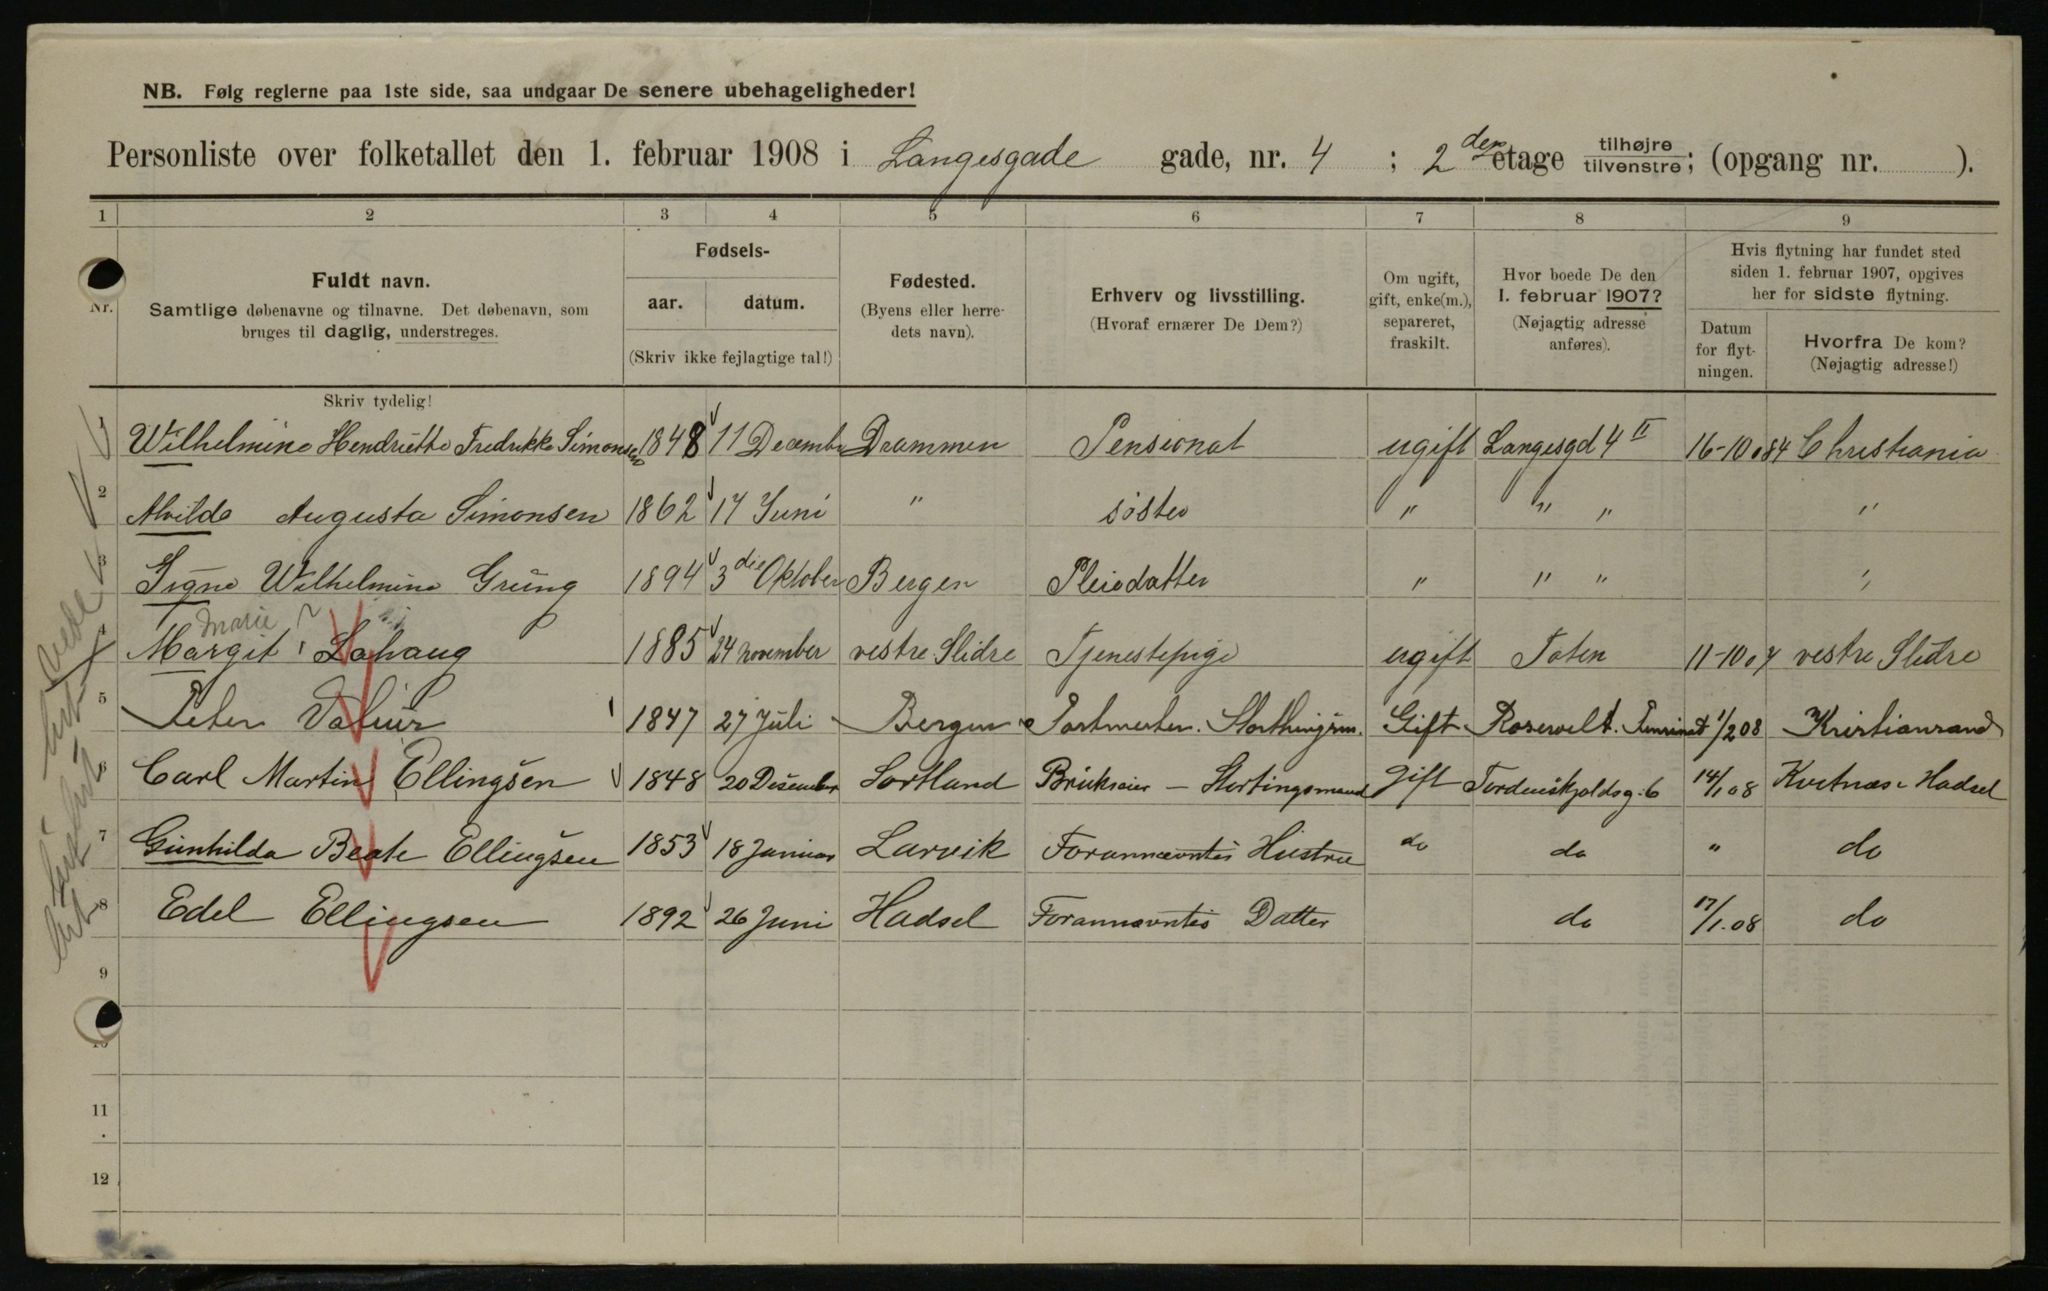 NB. Følg reglerne paa 1ste side, saa undgaar De senere ubehageligheder!
Personliste over folketallet den 1. februar 1908 i Langesgade gade, nr. 4 ; 2den etage tilhøjre tilvenstre; (opgang nr. ).
1 2 3 4 5 6 7 8 9
Nr.
Fuldt navn.
Samtlige døbenavne og tilnavne. Det døbenavn, som
bruges til daglig, understreges.
Skriv tydelig!
Fødsels-
aar. datum.
(Skriv ikke fejlagtige tal!)
Fødested.
(Byens eller herre-
dets navn).
Erhverv og livsstilling.
(Hvoraf ernærer De Dem?)
Om ugift,
gift, enke(m.),
separeret,
fraskilt.
Hvor boede De den
1. februar 1907?
(Nøjagtig adresse
anføres).
Hvis flytning har fundet sted
siden 1. februar 1907, opgives
her for sidste flytning.
Datum
for flyt-
ningen.
Hvorfra De kom?
(Nøjagtig adresse!)
1 Wilhelmine Hendriette Fredrikke Simonsen 1848 11 Decembr Drammen Pensionat ugift Langesgd 4 II 16-10.84 Christiania
2 Alvilde Augusta Simonsen 1862 17 Juni " søster " " " "
3 Signe Wilhelmine Grung 1894 3die Oktober Bergen Pleiedatter " " " "
Marie ?
4 Margit Lohaug 1885 24 november vestre Slidre Tjenestepige ugift Toten 11-10.07 vestre Slidre
5 Peter Valeur 1847 27 Juli Bergen Postmester. Storthingsm. Gift Rosevelt. Pensinat 1/2 08 Kristiansand
6 Carl Martin Ellingsen 1848 20 Desember Sortland Brukseier - Stortingsmand gift Tordenskjoldsg. 6 14/1 08 Kvitnæs i Hadsel
7 Gunhilda Beate Ellingsen 1853 18 Januar Larvik Forannævntes Hustru do do " do
8 Edel Ellingsen 1892 26 Juni Hadsel Forannævntes Datter do 17/1.08 do
9
10
11
12